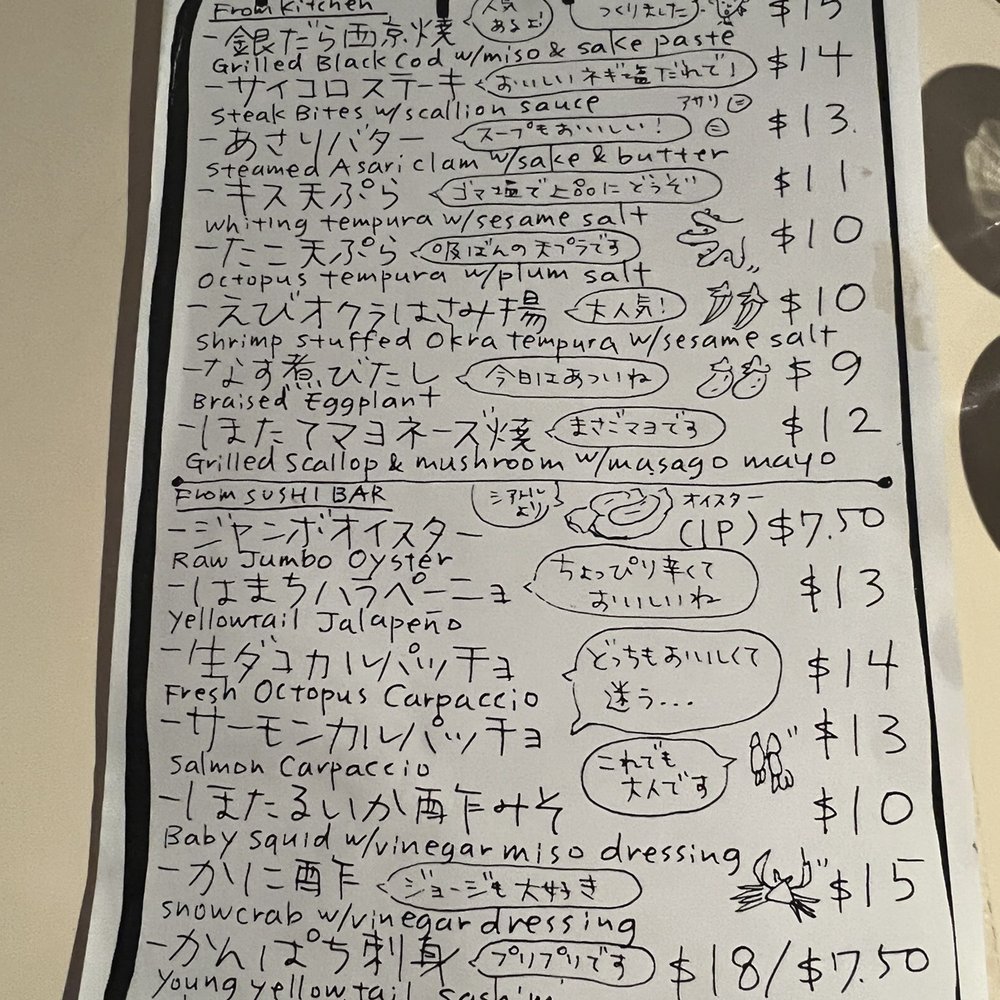 From Kitchen
人気あるよ!
つくりました
$15
-銀だら西京焼
Grilled Black Cod w/miso & sake paste
$14
-サイコロステーキ
おいしいネギ塩だれで!
Steak Bites w/scallion sauce
アサリ
$13.
-あさりバター
スープもおいしい!
Steamed Asari clam w/sake & butter
$11
-キス天ぷら
ゴマ塩で上品にどうぞ
whiting tempura w/sesame salt
$10
-たこ天ぷら
の天プラです
Octopus tempura w/plum salt
$10
-えびオクラはさみ揚
大人気!
Shrimp stuffed Okra tempura w/sesame salt
-なす煮びたし
今日はあついね
$9
Braised Eggplant
-ほたてマヨネーズ焼
まさごマヨです
$12
Grilled Scallop & mushroom w/masago mayo
From SUSHI BAR
シアトルより
オイスター
-ジャンボオイスター
(1P) $7.50
Raw Jumbo Oyster
-はまちハラペーニョ
ちょっぴり辛くて
おいしいね
$13
Yellowtail Jalapeño
-生ダコカルパッチョ
どっちもおいしくて
迷う...
$14
Fresh Octopus Carpaccio
-サーモンカルパッチョ
$13
Salmon Carpaccio
これでも
大人です
-ほたるいか酢みそ
$10
Baby squid w/vinegar miso dressing
-かに酢
ジョージも大好き
$15
snowcrab w/vinegar dressing
-かんぱち刺身
プリプリです
$18/$7.50
Young yellowtail sashimi